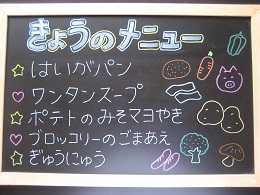 きょうのメニュー
はいがパン
ワンタンスープ
ポテトのみそマヨやき
ブロッコリーのごまあえ
ぎゅうにゅう